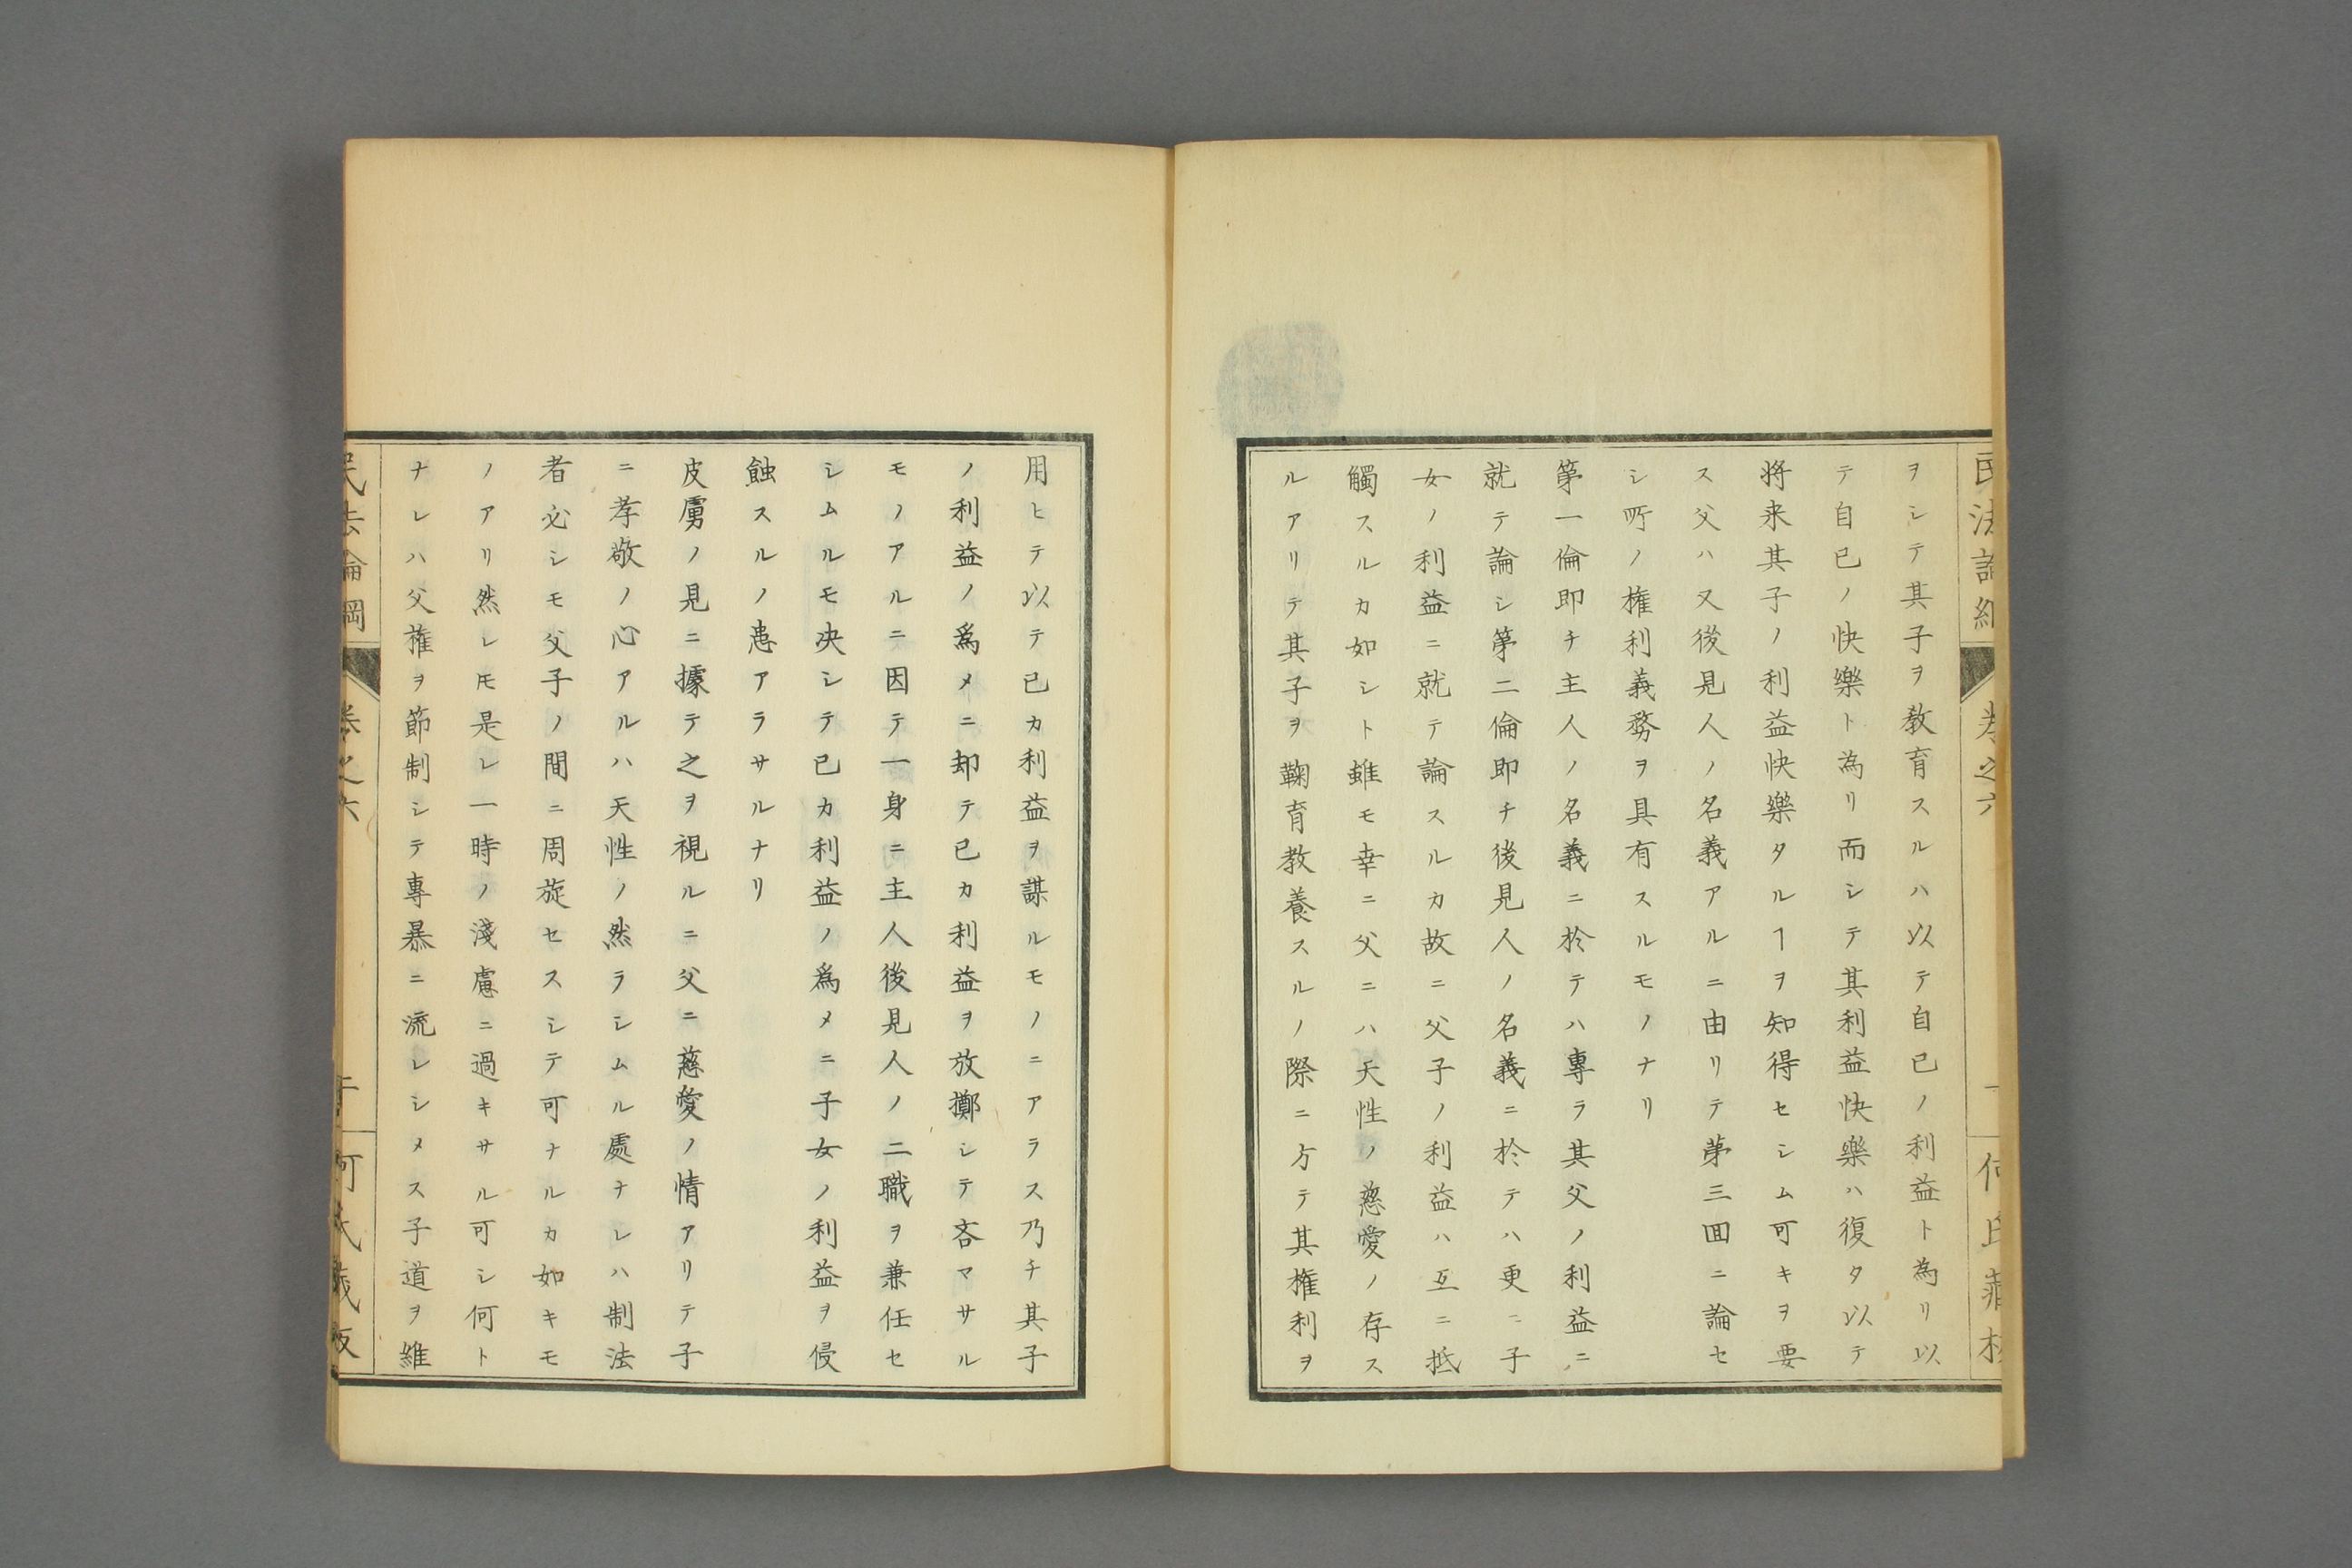 ヲシテ其子ヲ敎育スルハ以テ自已ノ利益ト為リ以
テ自已ノ快樂ト為リ而シテ其利益快樂ハ復タ以テ
将来其子ノ利益快樂タルヿヲ知得セシム可キヲ要
ス父ハ又後見人ノ名義アルニ由リテ苐三囬ニ論セ
シ所ノ権利義務ヲ具有スルモノナリ
苐一倫即チ主人ノ名義ニ於テハ專ラ其父ノ利益ニ
就テ論シ苐二倫即チ後見人ノ名義ニ於テハ更ニ子
女ノ利益ニ就テ論スルカ故ニ父子ノ利益ハ互ニ抵
觸スルカ如シト雖モ幸ニ父ニハ天性ノ慈愛ノ存ス
ルアリテ其子ヲ鞠育教養スルノ際ニ方テ其権利ヲ
用ヒテ以テ已カ利益ヲ謀ルモノニアラス乃チ其子
ノ利益ノ爲メニ却テ已カ利益ヲ放擲シテ吝マサル
モノアルニ因テ一身ニ主人後見人ノ二職ヲ兼任セ
シムルモ决シテ已カ利益ノ爲メニ子女ノ利益ヲ侵
蝕スルノ患アラサルナリ
皮膚ノ見ニ據テ之ヲ視ルニ父ニ慈愛ノ情アリテ子
ニ孝敬ノ心アルハ天性ノ然ラシムル處ナレハ制法
者必シモ父子ノ間ニ周旋セスシテ可ナルカ如キモ
ノアリ然レ𪜈是レ一時ノ淺慮ニ過キサル可シ何ト
ナレハ父権ヲ節制シテ專暴ニ流レシメス子道ヲ維
民法論綱
卷之六
何氏藏板